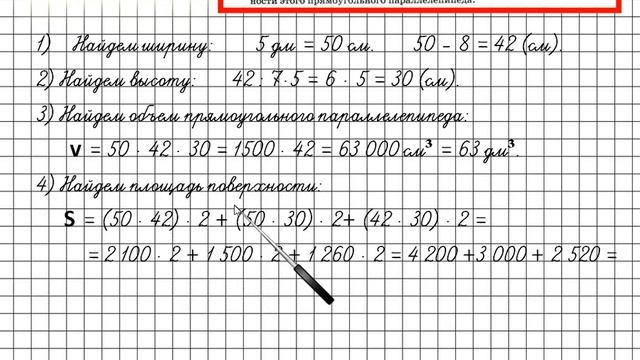 ности этого прямоугольного параллелепипеда.
1) Найдем ширину: 5 дм = 50 см. 50 - 8 = 42 (см).
2) Найдем высоту: 42 : 7·5 = 6 · 5 = 30 (см).
3) Найдем объем прямоугольного параллелепипеда:
v = 50 · 42 · 30 = 1500 · 42 = 63 000 см³ = 63 дм³.
4) Найдем площадь поверхности:
S = (50 · 42) · 2 + (50 · 30) · 2+ (42 · 30) · 2 =
= 2 100 · 2 + 1 500 · 2 + 1 260 · 2 = 4 200 +3 000 + 2 520 =